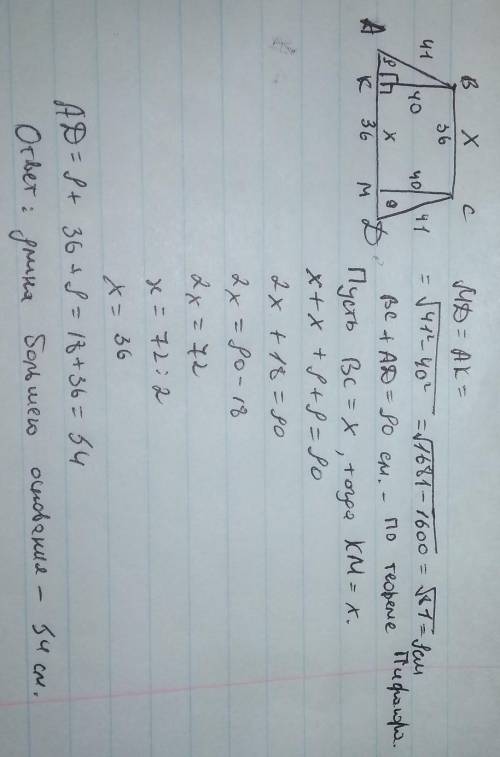 B X C
41 36 41
40 x 40
A 9 K 36 M 9 D
MD = AK =
= √41² - 40² = √1681 - 1600 = √81 = 9см
BC + AD = 90 см. - по теореме Пифагора.
Пусть BC = x, тогда KM = x.
x + x + 9 + 9 = 90
2x + 18 = 90
2x = 90 - 18
2x = 72
x = 72 : 2
x = 36
AD = 9 + 36 + 9 = 18 + 36 = 54
Ответ: длина большего основания – 54 см.